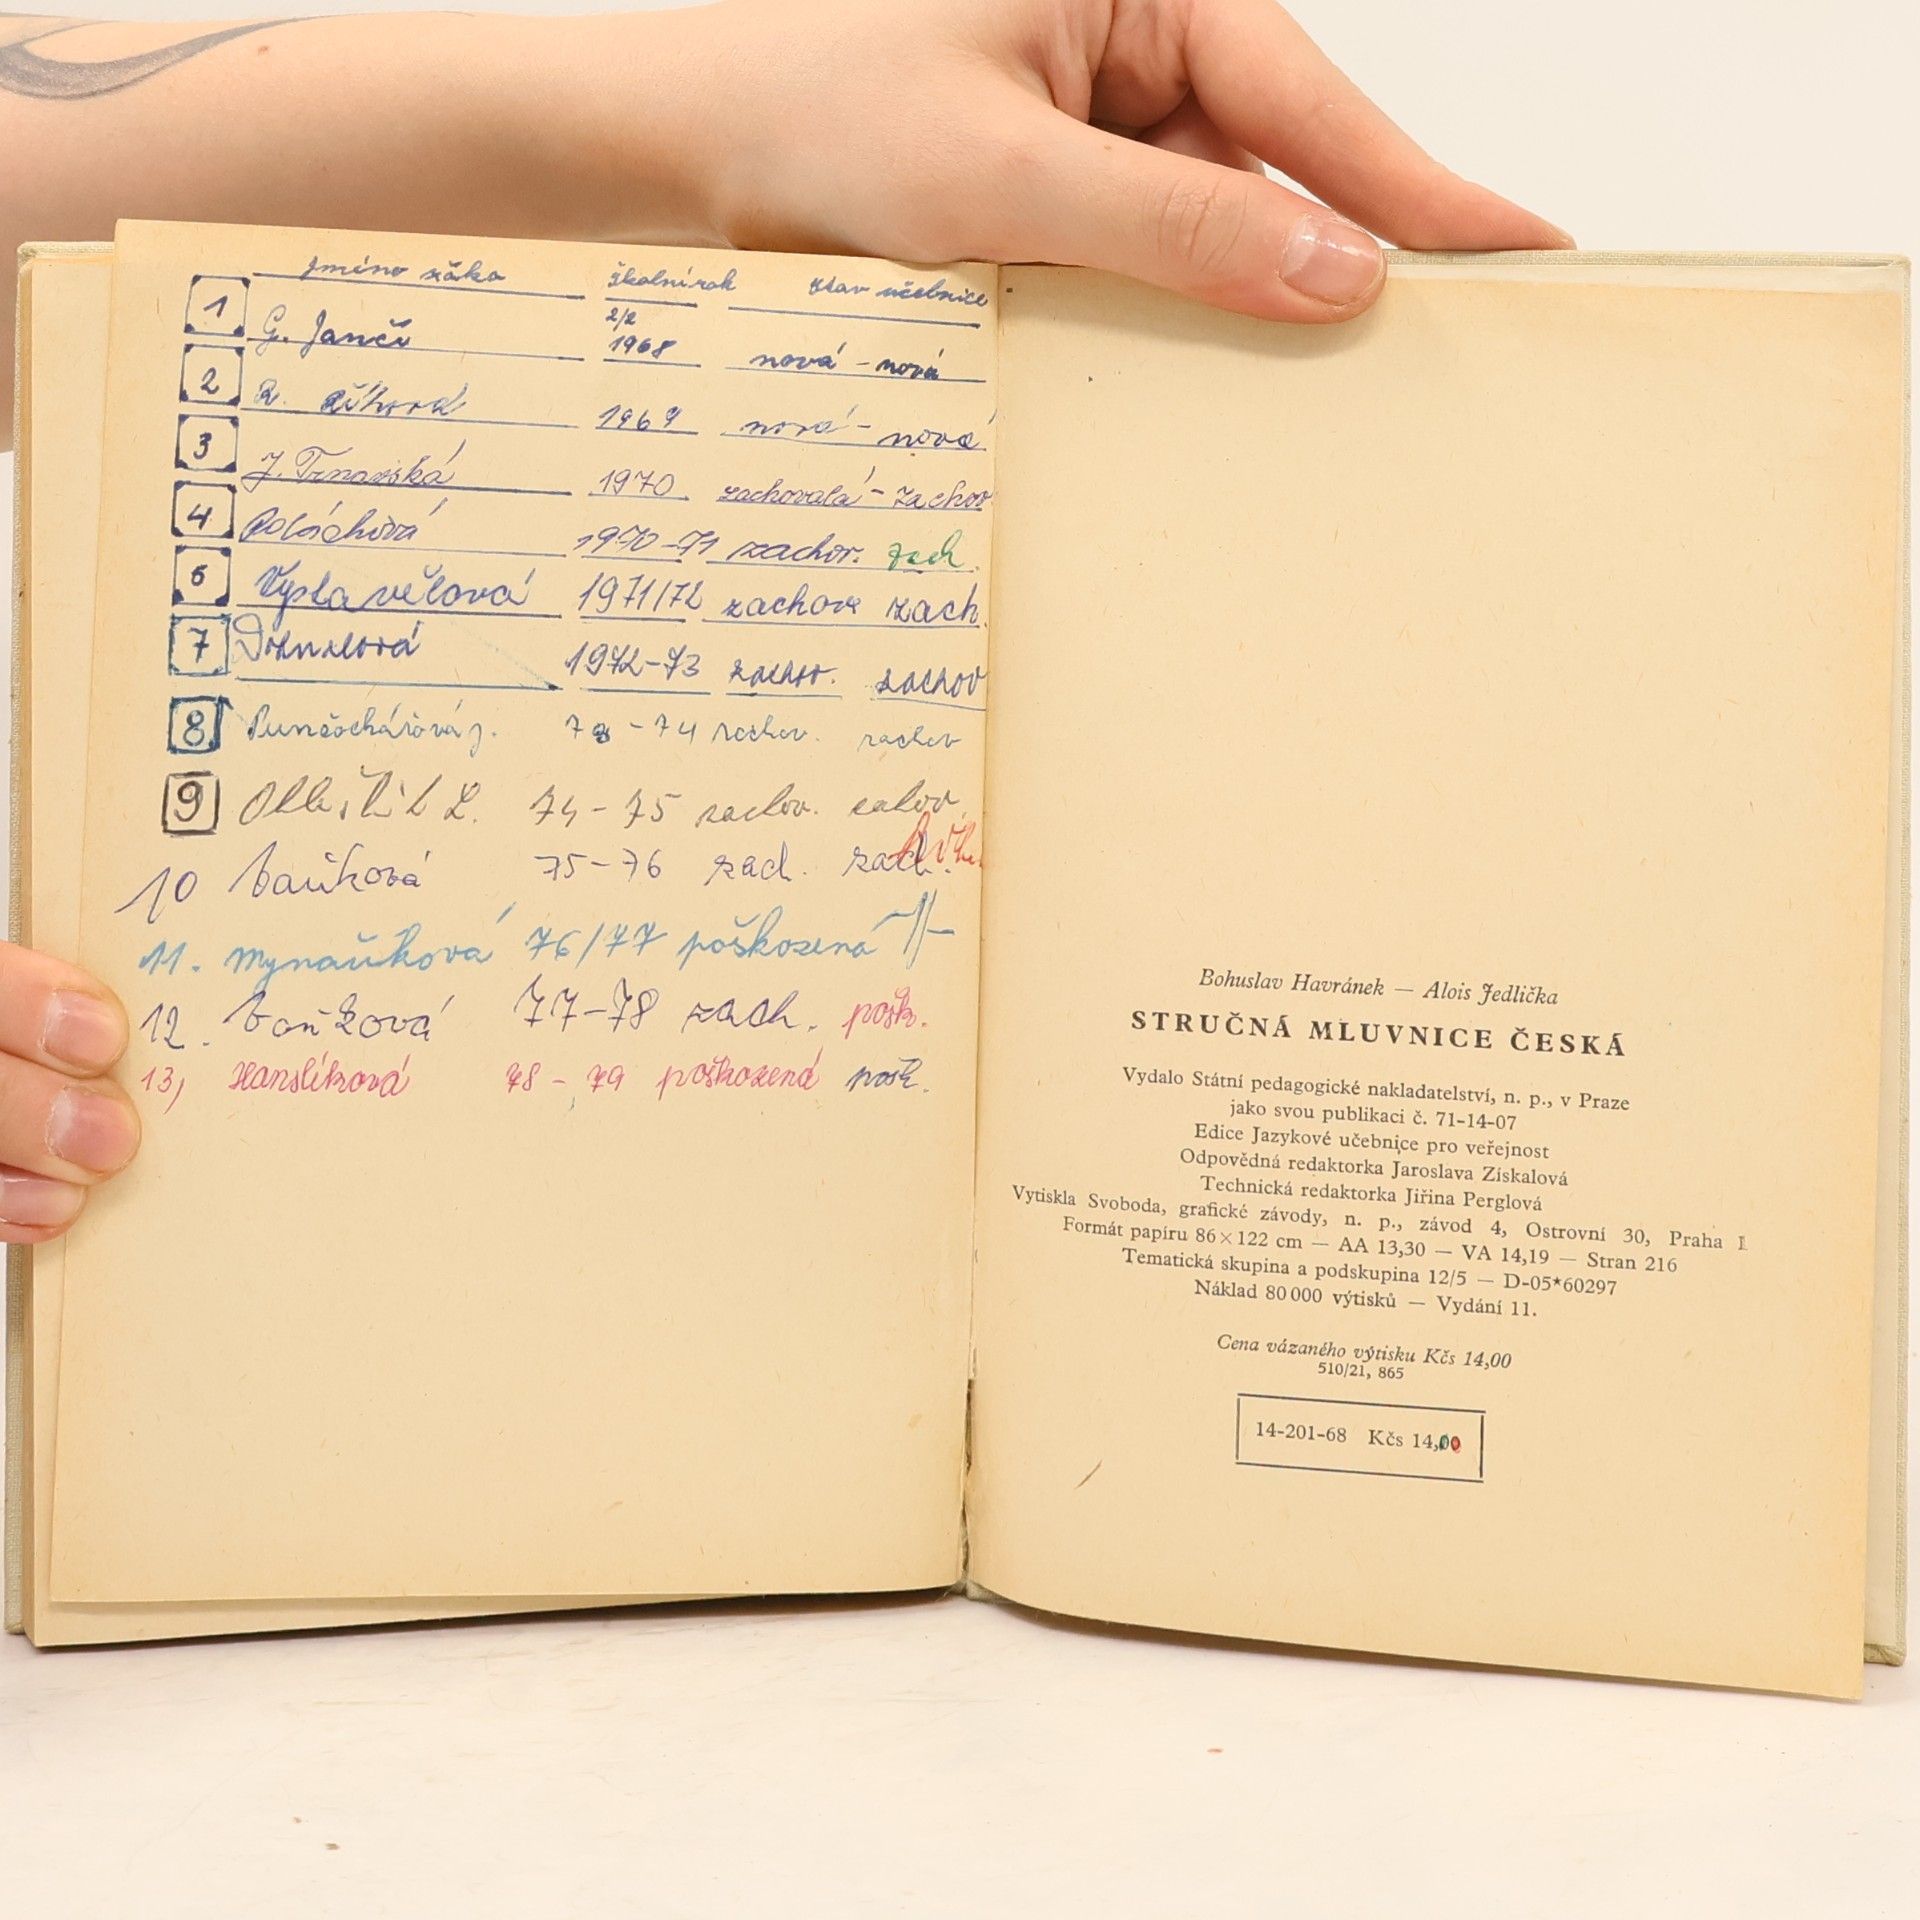 Jméno žáka školní rok stav učebnice
1 G. Janči 2/2 1968 nová - nová
2 R. 1969 nová - nová
3 J. Trnavská 1970 zachovalá - zachov
4 Poláchová 1970-71 zachov. zach.
6 Vystavělová 1971/72 zachov zach.
7 1972-73 zachov. zachov
8 Punčochářová J. 73-74 zachov. zachov
9 L. 74-75 zachov.
10 Vaňková 75-76 zach. zach.
11. Mynaříková 76/77 poškozená -//-
12. Vaňková 77-78 zach. pošk.
13, Hanslíková 78-79 poškozená pošk.
Bohuslav Havránek — Alois Jedlička
STRUČNÁ MLUVNICE ČESKÁ
Vydalo Státní pedagogické nakladatelství, n. p., v Praze
jako svou publikaci č. 71-14-07
Edice Jazykové učebnice pro veřejnost
Odpovědná redaktorka Jaroslava Získalová
Technická redaktorka Jiřina Perglová
Vytiskla Svoboda, grafické závody, n. p., závod 4, Ostrovní 30, Praha 1
Formát papíru 86×122 cm — AA 13,30 — VA 14,19 — Stran 216
Tematická skupina a podskupina 12/5 — D-05*60297
Náklad 80 000 výtisků — Vydání 11.
Cena vázaného výtisku Kčs 14,00
510/21, 865
14-201-68 Kčs 14,00